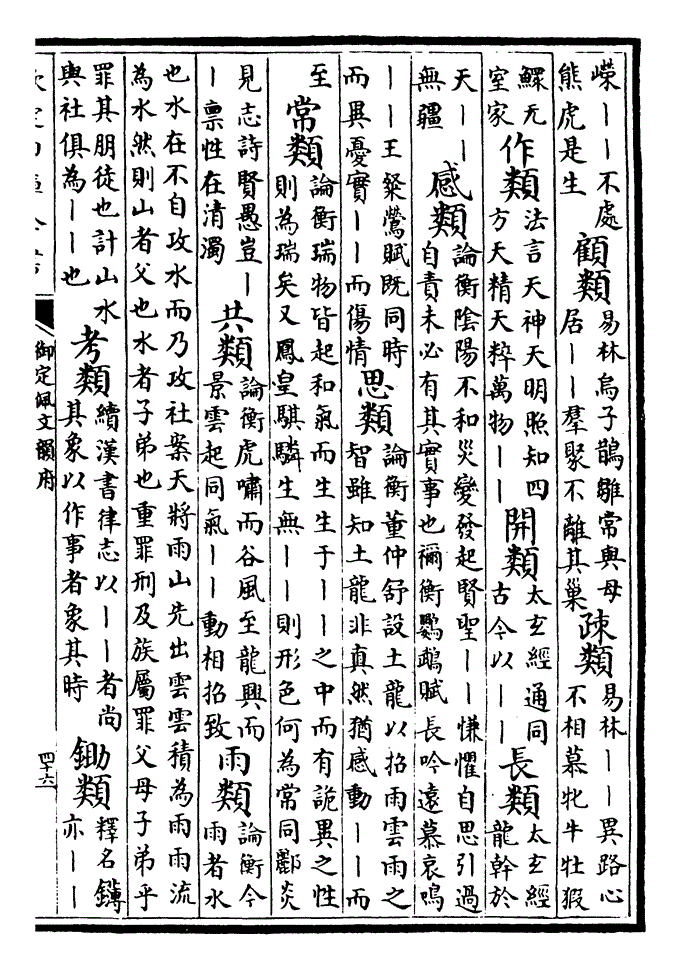 嶸――不處熊虎是生 顧類 易林烏子鵲雛常與母居――羣聚不離其巢 疎類 易林――異路心不相慕牝牛牡猳
鰥无室家 作類 法言天神天明照知四方天精天粹萬物―― 開類 太玄經通同古今以―― 長類 太玄經龍幹於
天――無疆 感類 論衡陰陽不和災變發起賢聖――慊懼自思引過自責未必有其實事也禰衡鸚鵡賦長吟遠慕哀鳴
――王粲鶯賦既同時而異憂實――而傷情 思類 論衡董仲舒設土龍以招雨雲雨之智雖知土龍非真然猶感動――而
至 常類 論衡瑞物皆起和氣而生生于――之中而有詭異之性則為瑞矣又鳳皇騏驎生無――則形色何為常同酈炎
見志詩賢愚豈――禀性在清濁 共類 論衡虎嘯而谷風至龍興而景雲起同氣――動相招致 雨類 論衡今雨者水
也水在不自攻水而乃攻社案天將雨山先出雲雲積為雨雨流為水然則山者父也水者子弟也重罪刑及族屬罪父母子弟乎
罪其朋徒也計山水與社俱為――也 考類 續漢書律志以――者尚其象以作事者象其時 鋤類 釋名鎛亦――
欽定四庫全書
御定佩文韻府
四十六